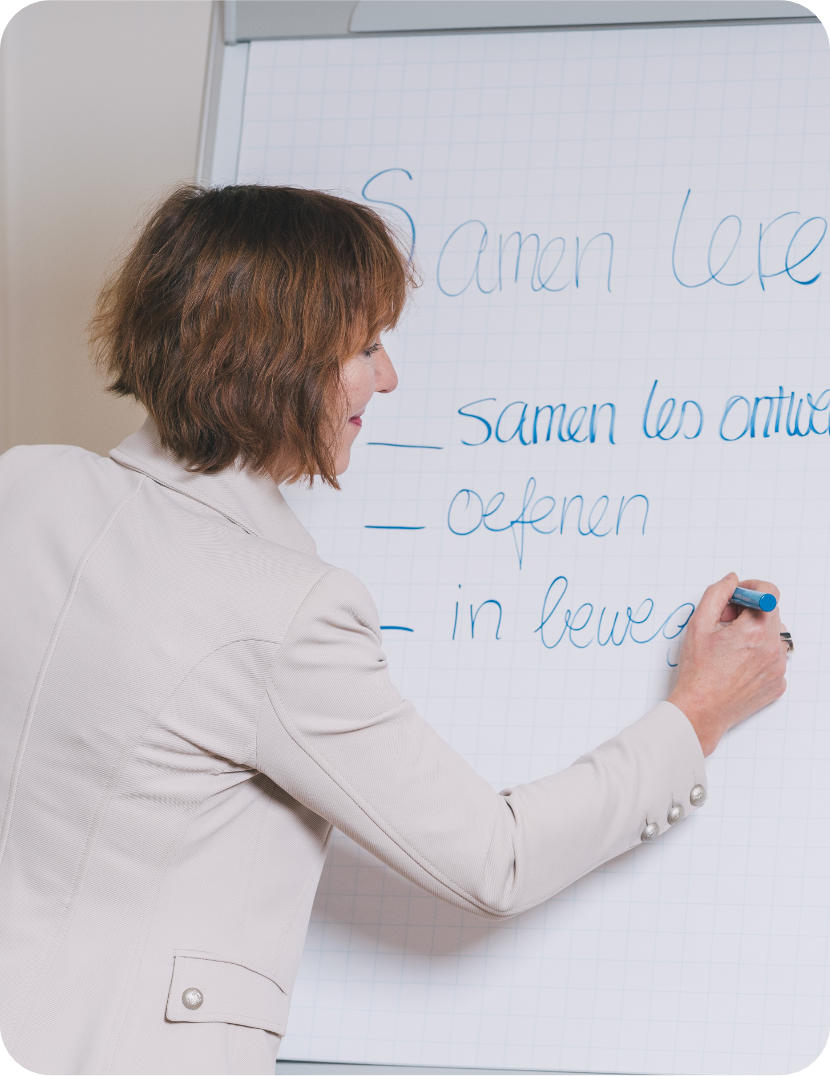 Samen lere
_ samen les ontwe
_ oefenen
_ in beweg